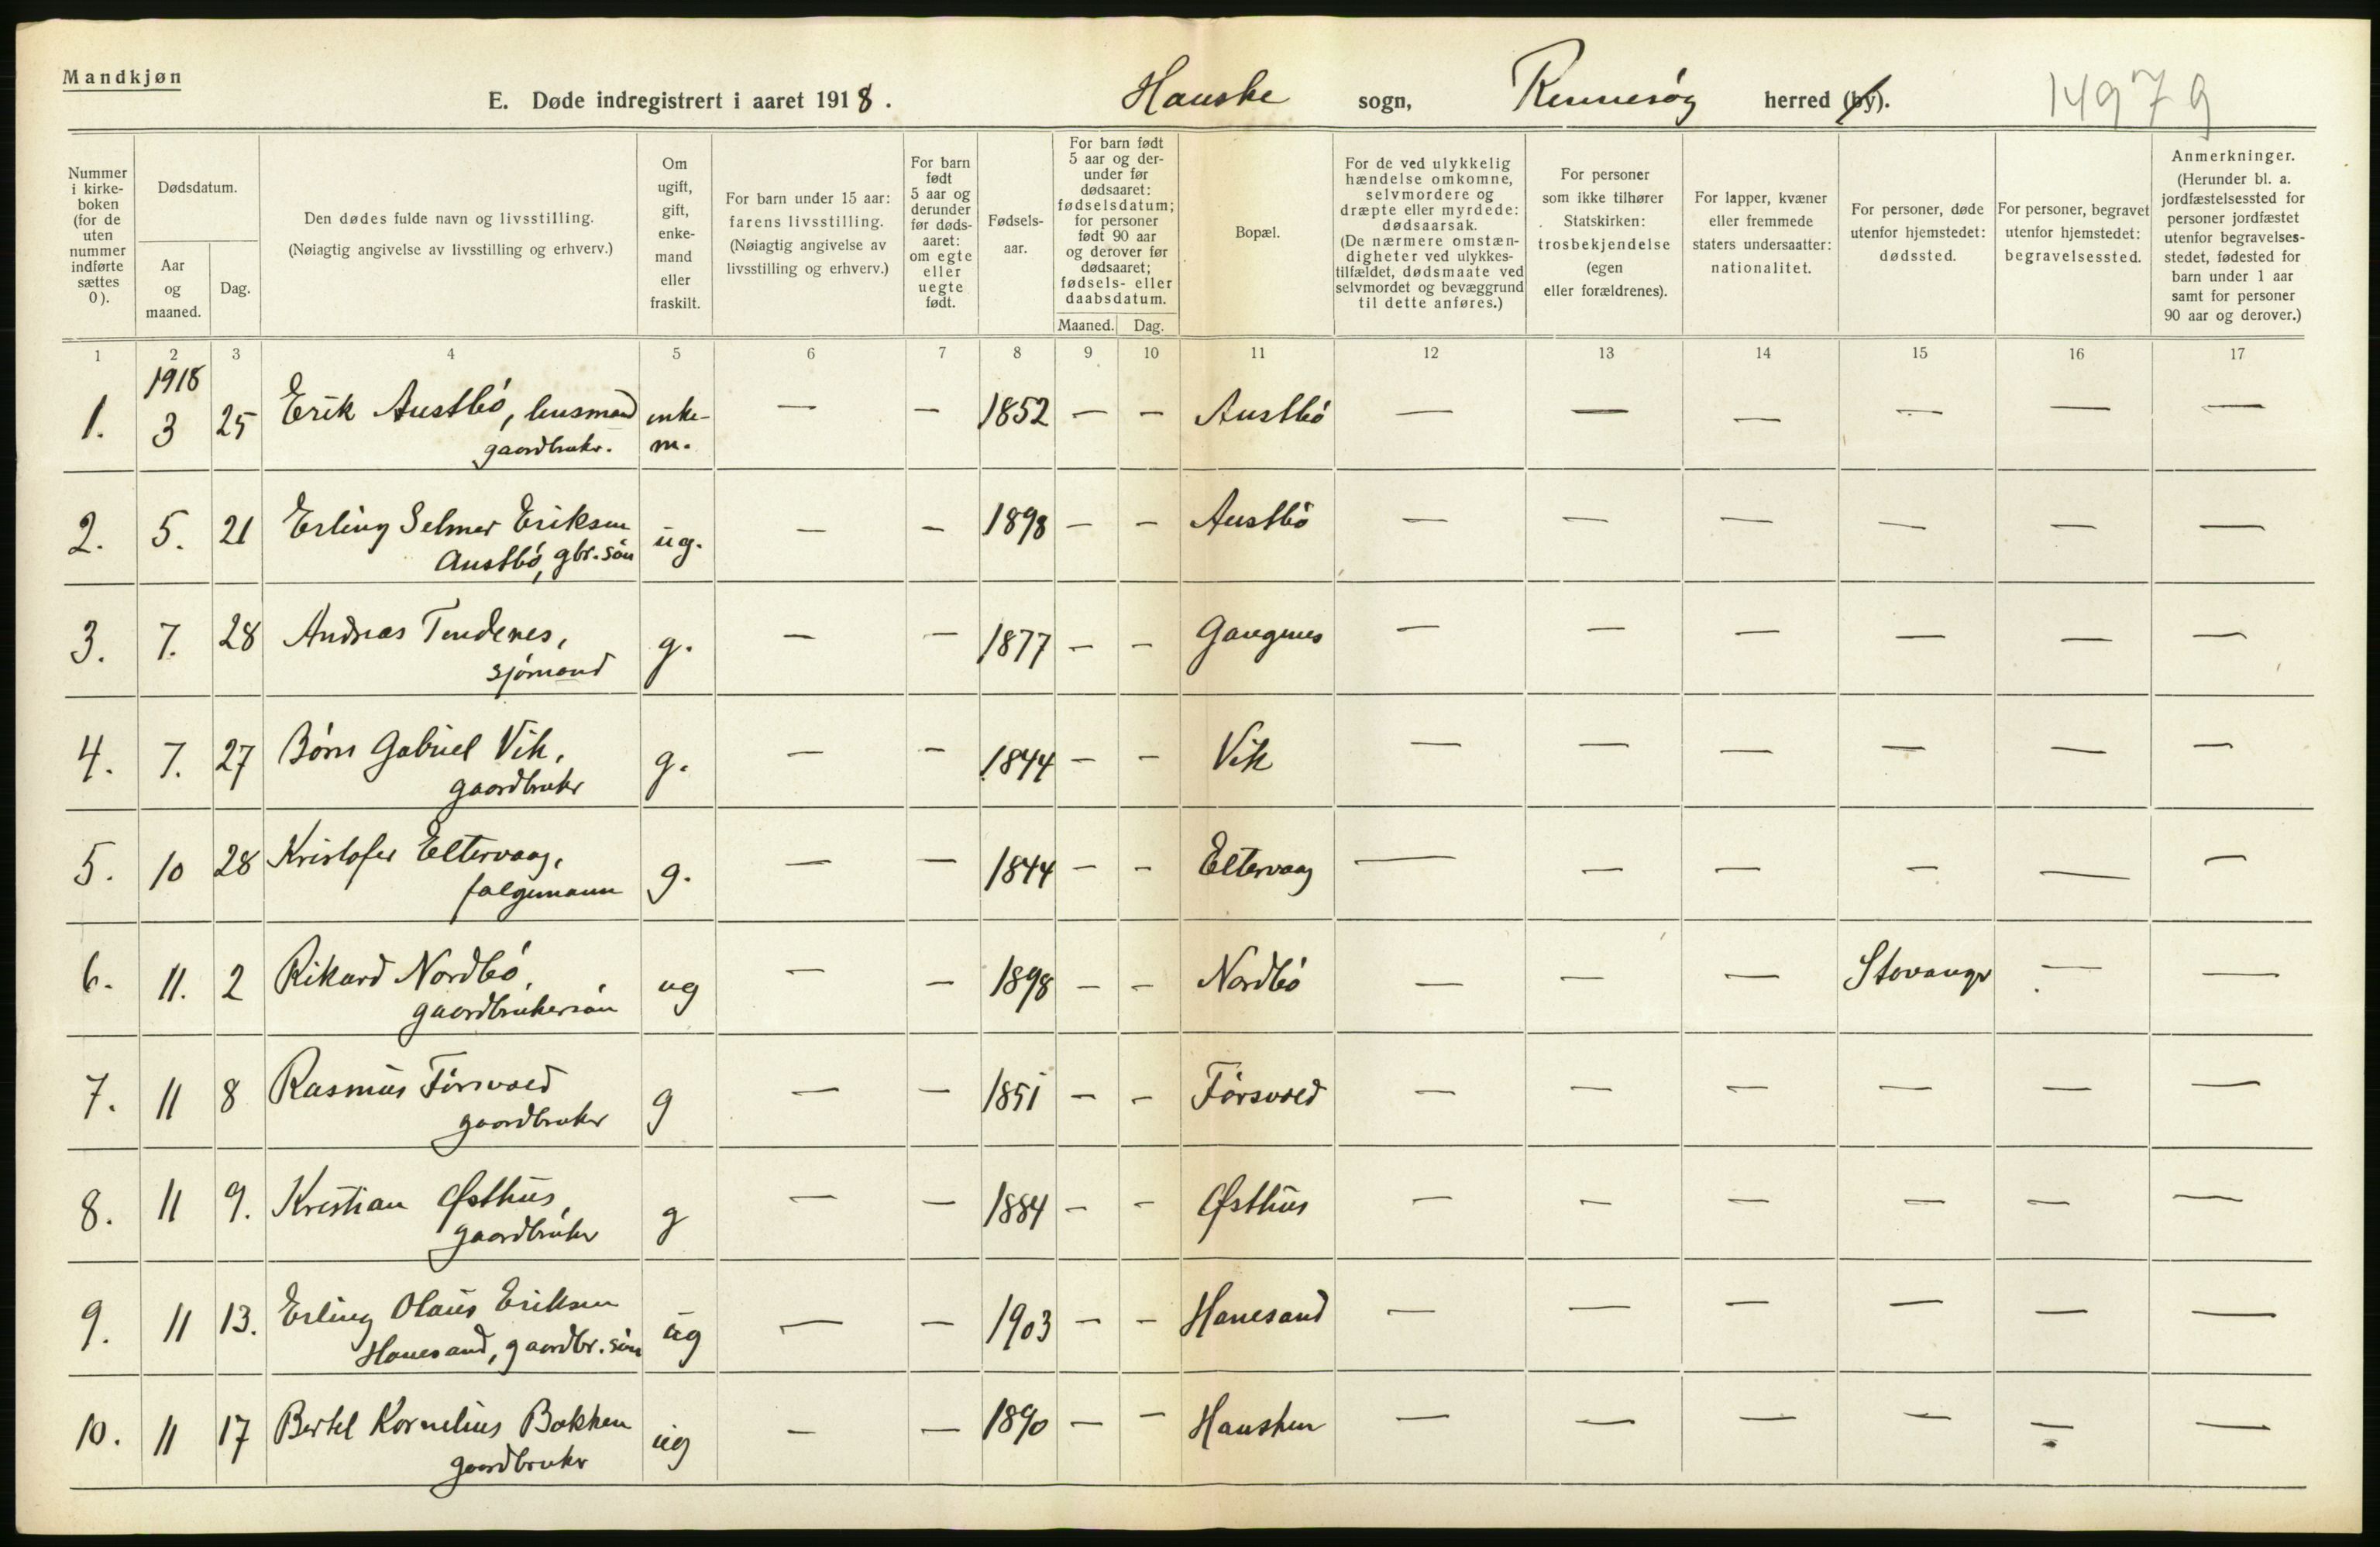 Mandkjøn
E. Døde indregistrert i aaret 1918. Hauske sogn, Rennesøy herred (by). 14979
Nummer i kirke-boken (for de uten nummer indførte sættes 0).
Dødsdatum.
Aar og maaned.
Dag.
Den dødes fulde navn og livsstilling.
(Nøiagtig angivelse av livsstilling og erhverv.)
Om ugift, gift, enke-mand eller fraskilt.
For barn under 15 aar: farens livsstilling.
(Nøiagtig angivelse av livsstilling og erhverv.)
For barn født 5 aar og derunder før døds-aaret: om egte eller uegte født.
Fødsels-aar.
For barn født 5 aar og der-under før dødsaaret: fødselsdatum; for personer født 90 aar og derover før dødsaaret; fødsels- eller daabsdatum.
Maaned. Dag.
Bopæl.
For de ved ulykkelig hændelse omkomne, selvmordere og dræpte eller myrdede: dødsaarsak.
(De nærmere omstæn-digheter ved ulykkes-tilfældet, dødsmaate ved selvmordet og bevæggrund til dette anføres.)
For personer som ikke tilhører Statskirken: trosbekjendelse (egen eller forældrenes).
For lapper, kvæner eller fremmede staters undersaatter: nationalitet.
For personer, døde utenfor hjemstedet: dødssted.
For personer, begravet utenfor hjemstedet: begravelsessted.
Anmerkninger.
(Herunder bl. a. jordfæstelsessted for personer jordfæstet utenfor begravelses-stedet, fødested for barn under 1 aar samt for personer 90 aar og derover.)
1 2 3 4 5 6 7 8 9 10 11 12 13 14 15 16 17
1918
1. 3 25 Erik Austbó, husmand enke- — — 1852 — — Austbó — — — — — —
gaardbruker. m.
2. 5. 21 Erling Selmer Eriksen ug. — — 1898 — — Austbó — — — — — —
Austbó, gbr. són
3. 7. 28 Andreas Tendenes, g. — — 1877 — — Gangenes — — — — — —
sjómand
4. 7. 27 Börn Gabriel Vik, g. — — 1844 — — Vik — — — — — —
gaardbruker
5. 10 28 Kristofer Eltervaag, g. — — 1844 — — Eltervaag — — — — — —
folgemann
6. 11. 2 Rikard Nordbó, ug — — 1898 — — Nordbó — — — Stavanger — —
gaardbrukersón
7. 11 8 Rasmus Fórsvold g — — 1851 — — Fórsvold — — — — — —
gaardbruker
8. 11 9. Kristian Østhus, g — — 1884 — — Østhus — — — — — —
gaardbruker
9. 11 13. Erling Olaus Eriksen ug — — 1903 — — Hanesand — — — — — —
Hanesand, gaardbr. són
10. 11 17 Bertel Kornelius Bakken ug — — 1890 — — Hausken — — — — — —
gaardbruker